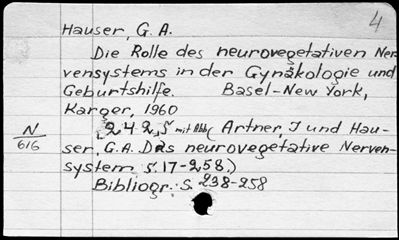 4
Hauser, G. A.
Die Rolle des neurovegetativen Ner-
vensystems in der Gynäkologie und
Geburtshilfe. Basel-New York,
Karger, 1960
N
616
242 S mit Abb( Artner, J und Hau-
ser, G.A. Das neurovegetative Nerven-
system S. 17-258.)
Bibliogr: S. 238-258